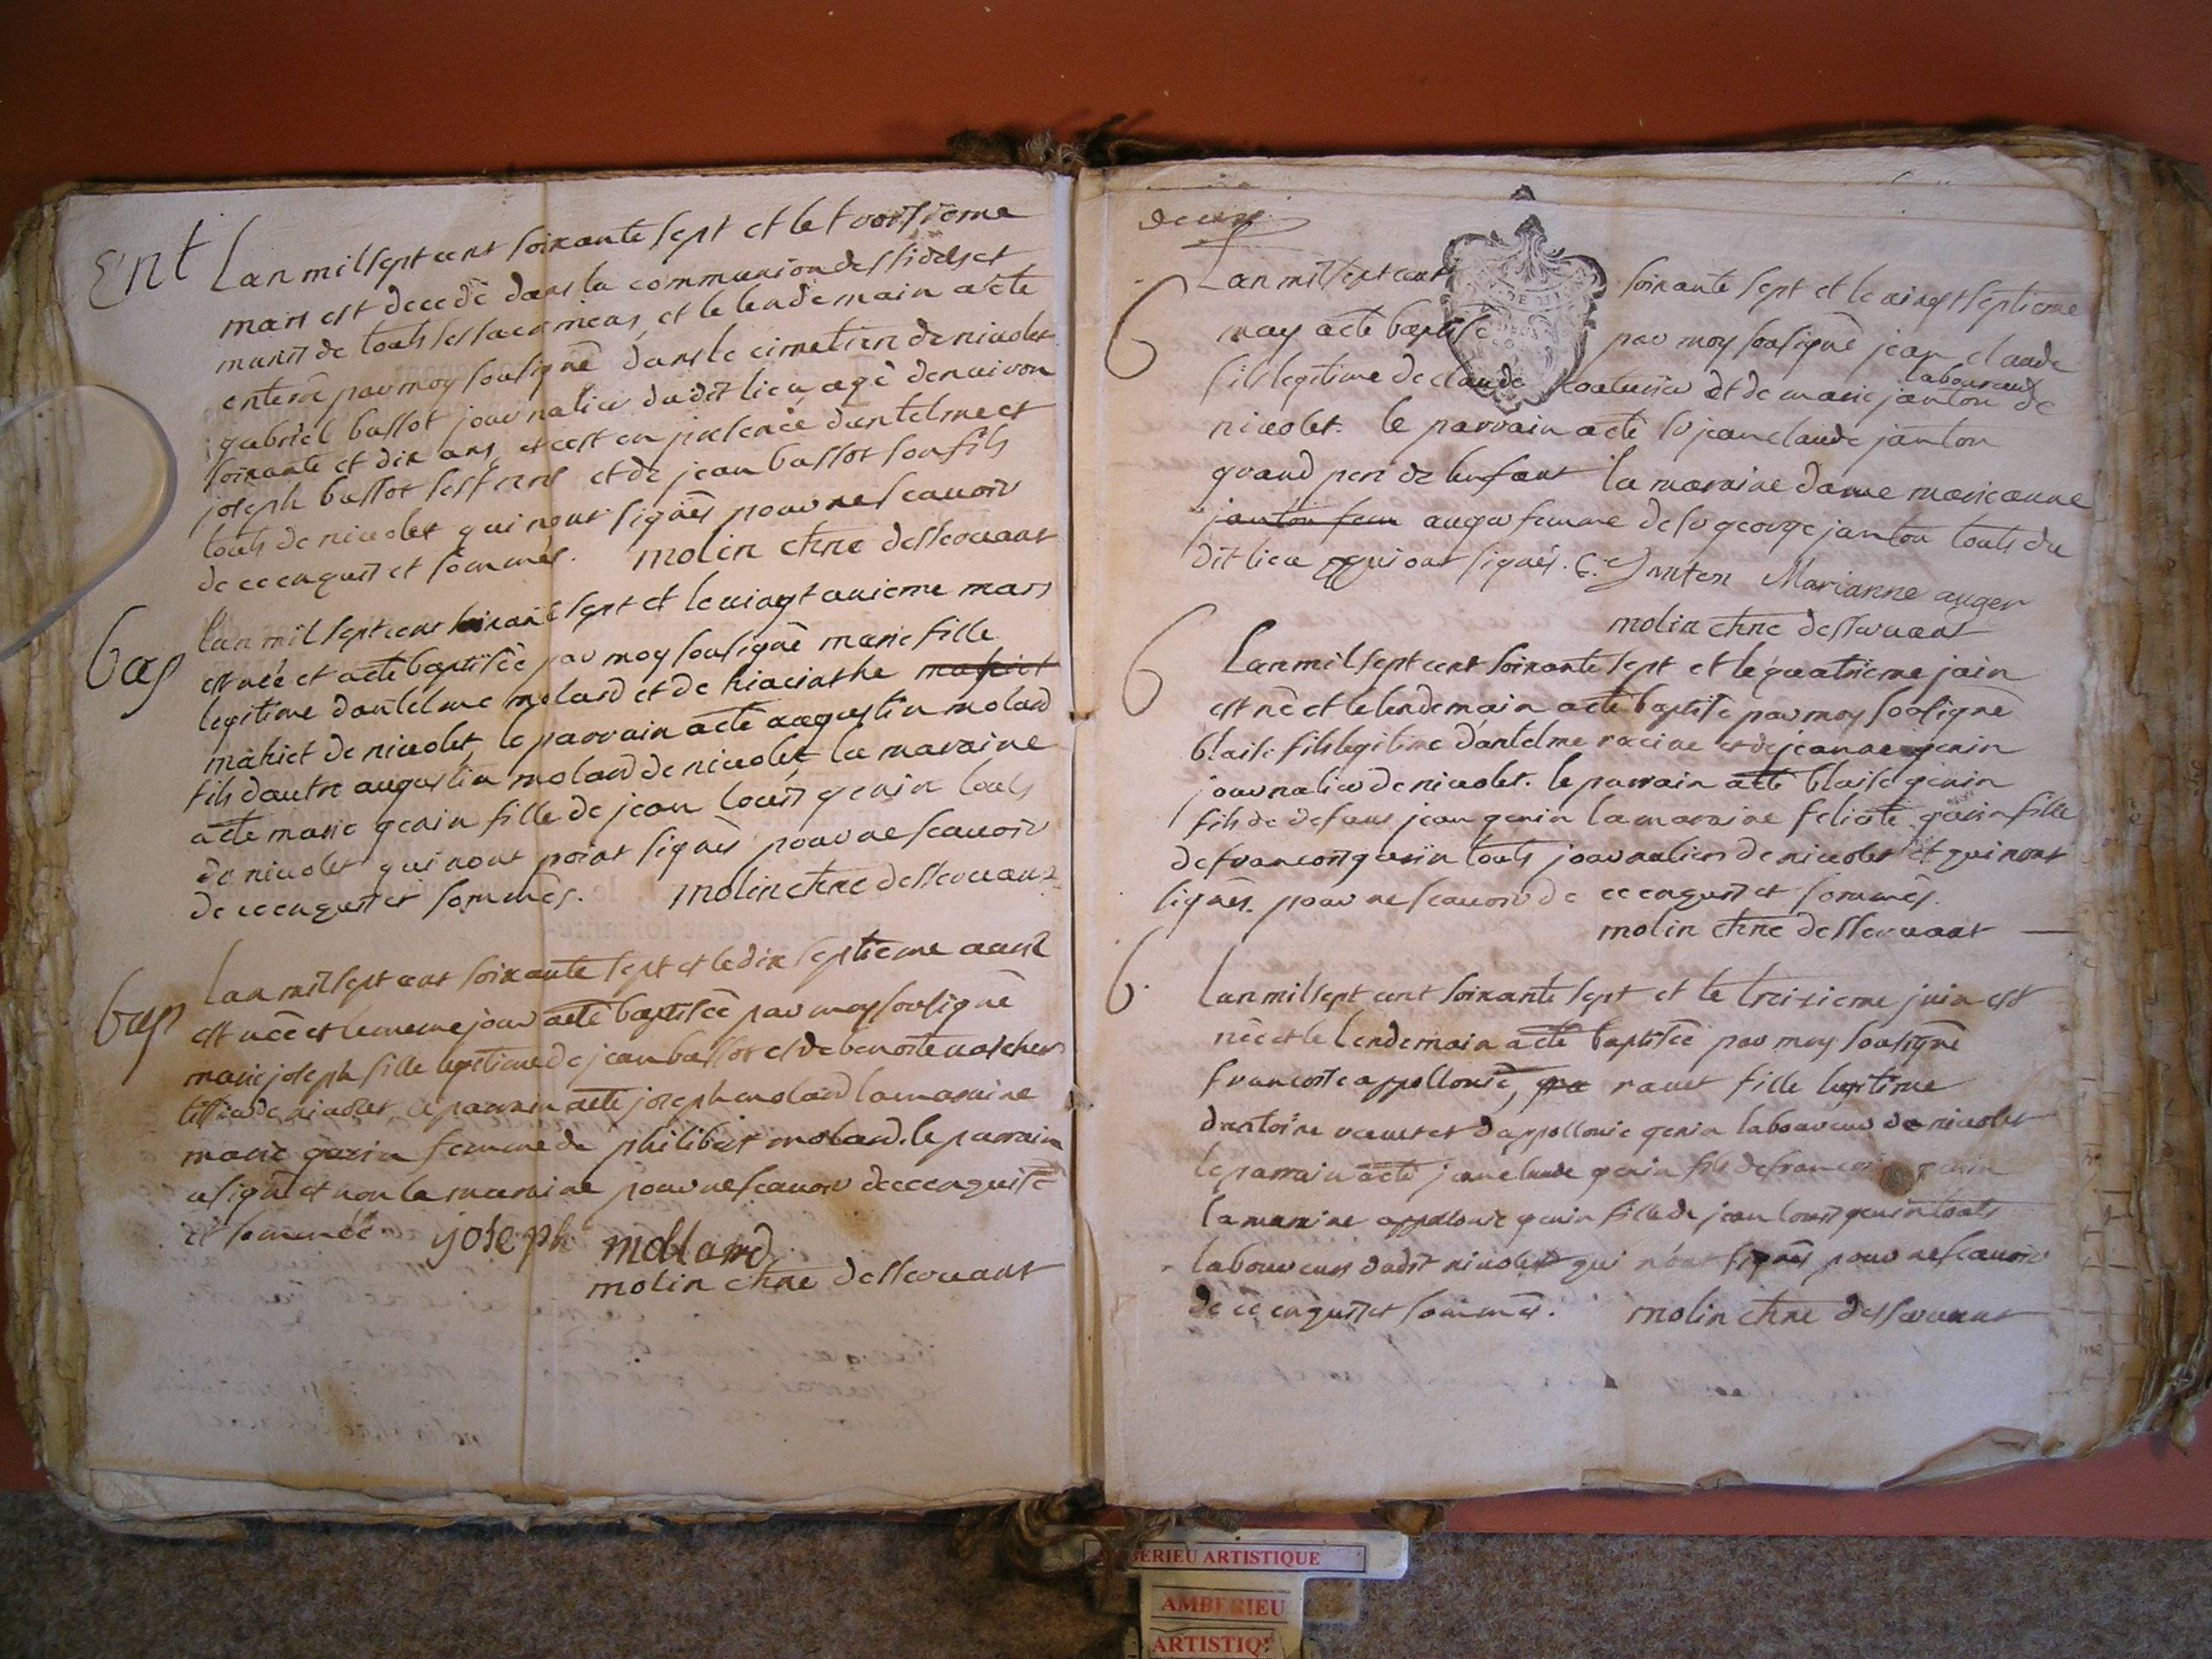 Ent
Lan mil sept cent soixante sept et le troisieme
mars est decedè dans la communion des fideles et
munit de touts les sacremens, et le lendemain a ete
enterré par moy sousigné dans le cimetiere de nivolet
gabriel ballot journalier dudit lieu, agè denviron
soixante et dix ans, et cest en presence dantelme et
joseph ballot ses freres et de jean ballot son fils
touts de nivolet qui nont signès pour ne scavoir
de ce enquist et sommès. molin chne desservant
bap
lan mil sept cent soixante sept et le vingt unieme mars
est née et a eté baptisèe par moy sousigné marie fille
legitime dantelme molard et de hiacinthe
mahiet de nivolet, le parrain a ete augustin molard
fils dautre augustin molard de nivolet, la maraine
a ete marie genin fille de jean louis genin touts
de nivolet qui nont point signès pour ne scavoir
de ce enquist et sommès. molin chne desservant
bap
Lan mil sept cent soixante sept et le dix septieme avril
est nèe et le meme jour a eté baptisèe par moy sousigné
marie joseph fille legitime de jean ballot et de benoite
de nivolet, le parrain a eté joseph molard la maraine
marie genin femme de philibert molard. le parrain
a signé et non la maraine pour ne scavoir de ce enquise
et sommée joseph mollard
molin chne desservant
Lan mil sept cent soixante sept et le vingt septieme
b
may a eté baptisé par moy sousigné jean claude
laboureurs
fils legitime de claude et de marie janton de
nivolet. le parrain a eté sr jean claude janton
grand pere de lenfant la maraine dame marie anne
janton fem auger femme de sr george janton touts du
dit lieu qui ont signés. C. Janten Marianne auger
molin chne desservant
b
Lan mil sept cent soixante sept et le quatrieme juin
est né et le lendemain a eté baptisé par moy sousigné
blaise fils legitime dantelme racine et de jeanne genin
journalier de nivolet. le parrain a eté blaise genin
fils de defunt jean genin la maraine felicité genin fille
de francois genin touts journaliers de nivolet et qui nont
signès pour ne scavoir de ce enquist et sommès.
molin chne desservant
b.
Lan mil sept cent soixante sept et le treizieme juin est
née et le lendemain a eté baptisée par moy sousigné
francoise appollonie, ravet fille legitime
dantoine ravet et dappollonie genin laboureur de nivolet
le parrain a eté jean claude genin fils de francois genin
la maraine appollonie genin fille de jean louis genin touts
laboureurs dudit nivolet qui n'ont signès pour ne scavoir
de ce enquist et sommès. molin chne desservant
AMBERIEU ARTISTIQUE
AMBERIEU